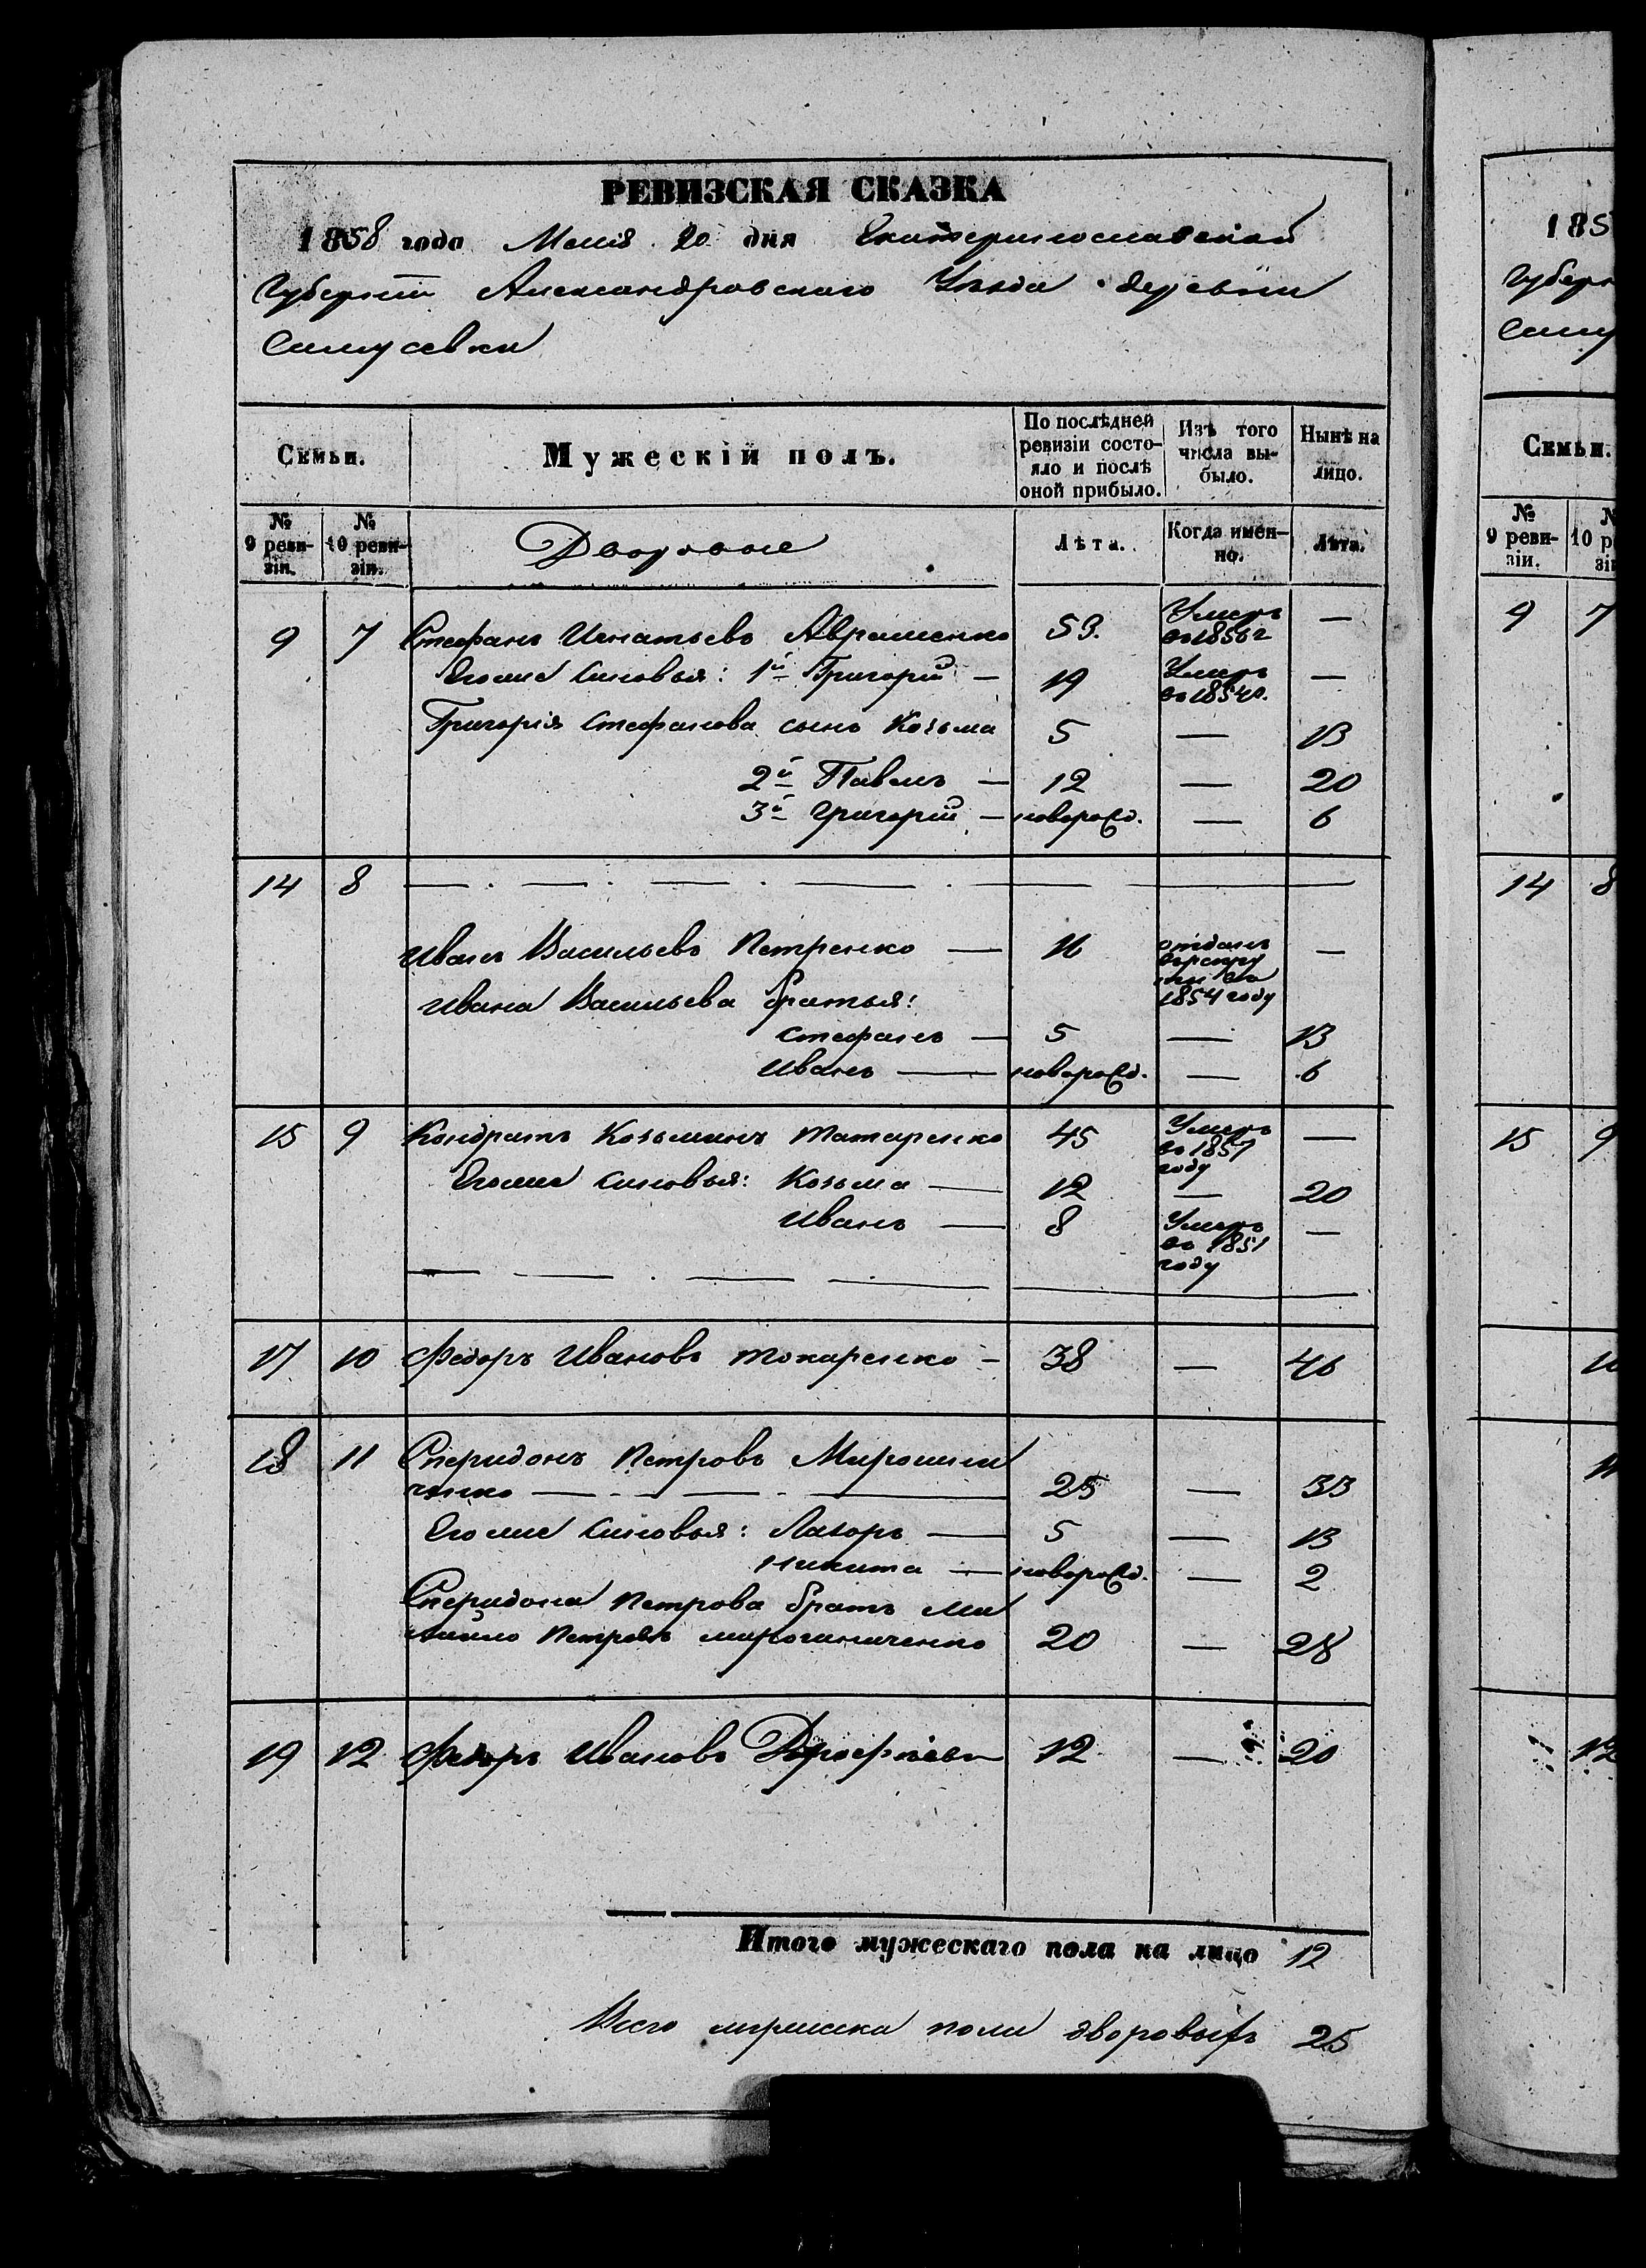 РЕВИЗСКАЯ СКАЗКА
1858 года Маія 20 дня Екатеринославской
Губерніи Александровскаго Уѣзда деревни
Семьи.
Мужескій полъ.
По послѣдней ревизіи состояло и послѣ оной прибыло.
Изъ того числа выбыло.
Нынѣ на лицо.
№ 9 ревизіи.
№ 10 ревизіи.
Дворовые
Лѣта.
Когда именно.
Лѣта.
9 7 Стефанъ Игнатьевъ Авраменко 53. Умеръ въ 1856 г —
Егоже сыновья: 1й Григорій — 19 Умеръ въ 1854 г. —
Григорія Стефанова сынъ Козьма 5 — 13
2й Павелъ — 12 — 20
3й Григорій — новорожд. — 6
14 8
Иванъ Васильевъ Петренко — 16 отданъ въ рекруты въ 1854 году —
Ивана Васильева братья:
Стефанъ — 5 — 13
Иванъ — новорожд. — 6
15 9 Кондратъ Козьминъ Татаренко 45 Умеръ въ 1857 году —
Егоже сыновья: Козьма — 12 — 20
Иванъ — 8 Умеръ въ 1851 году —
17 10 Федоръ Ивановъ Токаренко — 38 — 46
18 11 Спиридонъ Петровъ Мирошни
ченко — 25 — 33
Егоже сыновья: Лазорь — 5 — 13
Никита — новорожд. — 2
Спиридона Петрова братъ Ми
хайло Петровъ Мирошниченко 20 — 28
19 12 Федоръ Ивановъ 12 — 20
Итого мужескаго пола на лицо 12
Всего мужеска пола дворовыхъ 25
185
Губерн
Семьи.
№ 9 ревизіи.
9 7
14 8
15 9